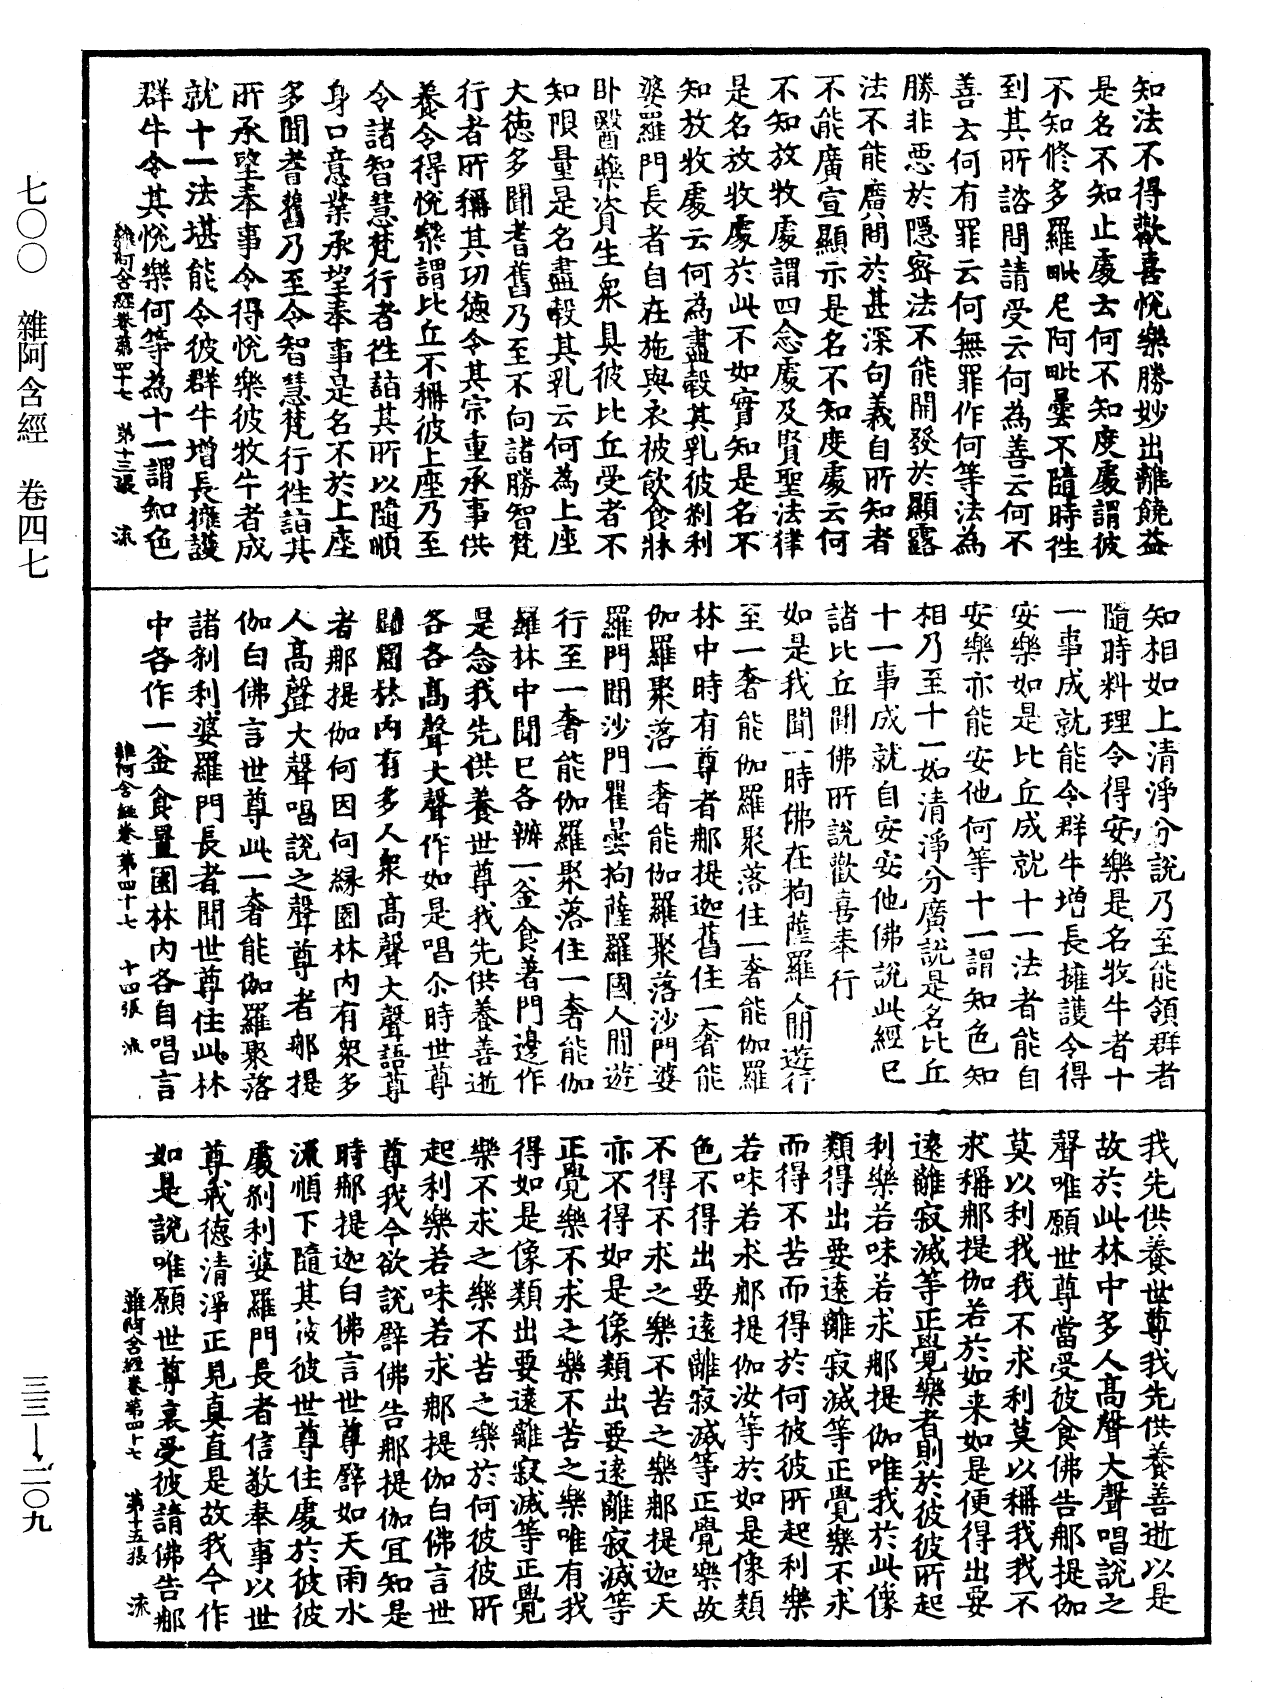 七〇〇　雜阿含經　卷四七
知法不得歡喜悅樂勝妙出離饒益
是名不知止處云何不知度處謂彼
不知修多羅毗尼阿毗曇不隨時往
到其所諮問請受云何為善云何不
善云何有罪云何無罪作何等法為
勝非惡於隱密法不能開發於顯露
法不能廣問於甚深句義自所知者
不能廣宣顯示是名不知度處云何
不知放牧處謂四念處及賢聖法律
是名放牧處於此不如實知是名不
知放牧處云何為盡㲉其乳彼刹利
婆羅門長者自在施與衣被飲食牀
卧醫藥資生衆具彼比丘受者不
知限量是名盡㲉其乳云何為上座
大德多聞耆舊乃至不向諸勝智梵
行者所稱其功德令其宗重承事供
養令得悅樂謂比丘不稱彼上座乃至
令諸智慧梵行者往詣其所以隨順
身口意業承望奉事是名不於上座
多聞耆舊乃至令智慧梵行往詣其
所承望奉事令得悅樂彼牧牛者成
就十一法堪能令彼群牛增長擁護
群牛令其悅樂何等為十一謂知色
雜阿含經卷第四十七　第十三張　流
知相如上清淨分說乃至能領群者
隨時料理令得安樂是名牧牛者十
一事成就能令群牛增長擁護令得
安樂如是比丘成就十一法者能自
安樂亦能安他何等十一謂知色知
相乃至十一如清淨分廣說是名比丘
十一事成就自安安他佛說此經已
諸比丘聞佛所說歡喜奉行
如是我聞一時佛在拘薩羅人間遊行
至一奢能伽羅聚落住一奢能伽羅
林中時有尊者那提迦舊住一奢能
伽羅聚落一奢能伽羅聚落沙門婆
羅門聞沙門瞿曇拘薩羅國人間遊
行至一奢能伽羅聚落住一奢能伽
羅林中聞已各辦一釜食著門邊作
是念我先供養世尊我先供養善逝
各各高聲大聲作如是唱尒時世尊
聞園林內有多人衆高聲大聲語尊
者那提伽何因何緣園林內有衆多
人高聲大聲唱說之聲尊者那提
伽白佛言世尊此一奢能伽羅聚落
諸刹利婆羅門長者聞世尊住此林
中各作一釜食置園林內各自唱言
雜阿含經卷第四十七　十四張　流
我先供養世尊我先供養善逝以是
故於此林中多人高聲大聲唱說之
聲唯願世尊當受彼食佛告那提伽
莫以利我我不求利莫以稱我我不
求稱那提伽若於如来如是便得出要
遠離寂滅等正覺樂者則於彼彼所起
利樂若味若求那提伽唯我於此像
類得出要遠離寂滅等正覺樂不求
而得不苦而得於何彼彼所起利樂
若味若求那提伽汝等於如是像類
色不得出要遠離寂滅等正覺樂故
不得不求之樂不苦之樂那提迦天
亦不得如是像類出要遠離寂滅等
正覺樂不求之樂不苦之樂唯有我
得如是像類出要遠離寂滅等正覺
樂不求之樂不苦之樂於何彼彼所
起利樂若味若求那提伽白佛言世
尊我今欲說譬佛告那提伽宜知是
時那提迦白佛言世尊譬如天雨水
流順下隨其彼彼世尊住處於彼彼
處刹利婆羅門長者信敬奉事以世
尊戒德清淨正見真直是故我今作
如是說唯願世尊哀受彼請佛告那
雜阿含經卷第四十七　第十五張　流
三三—二〇九